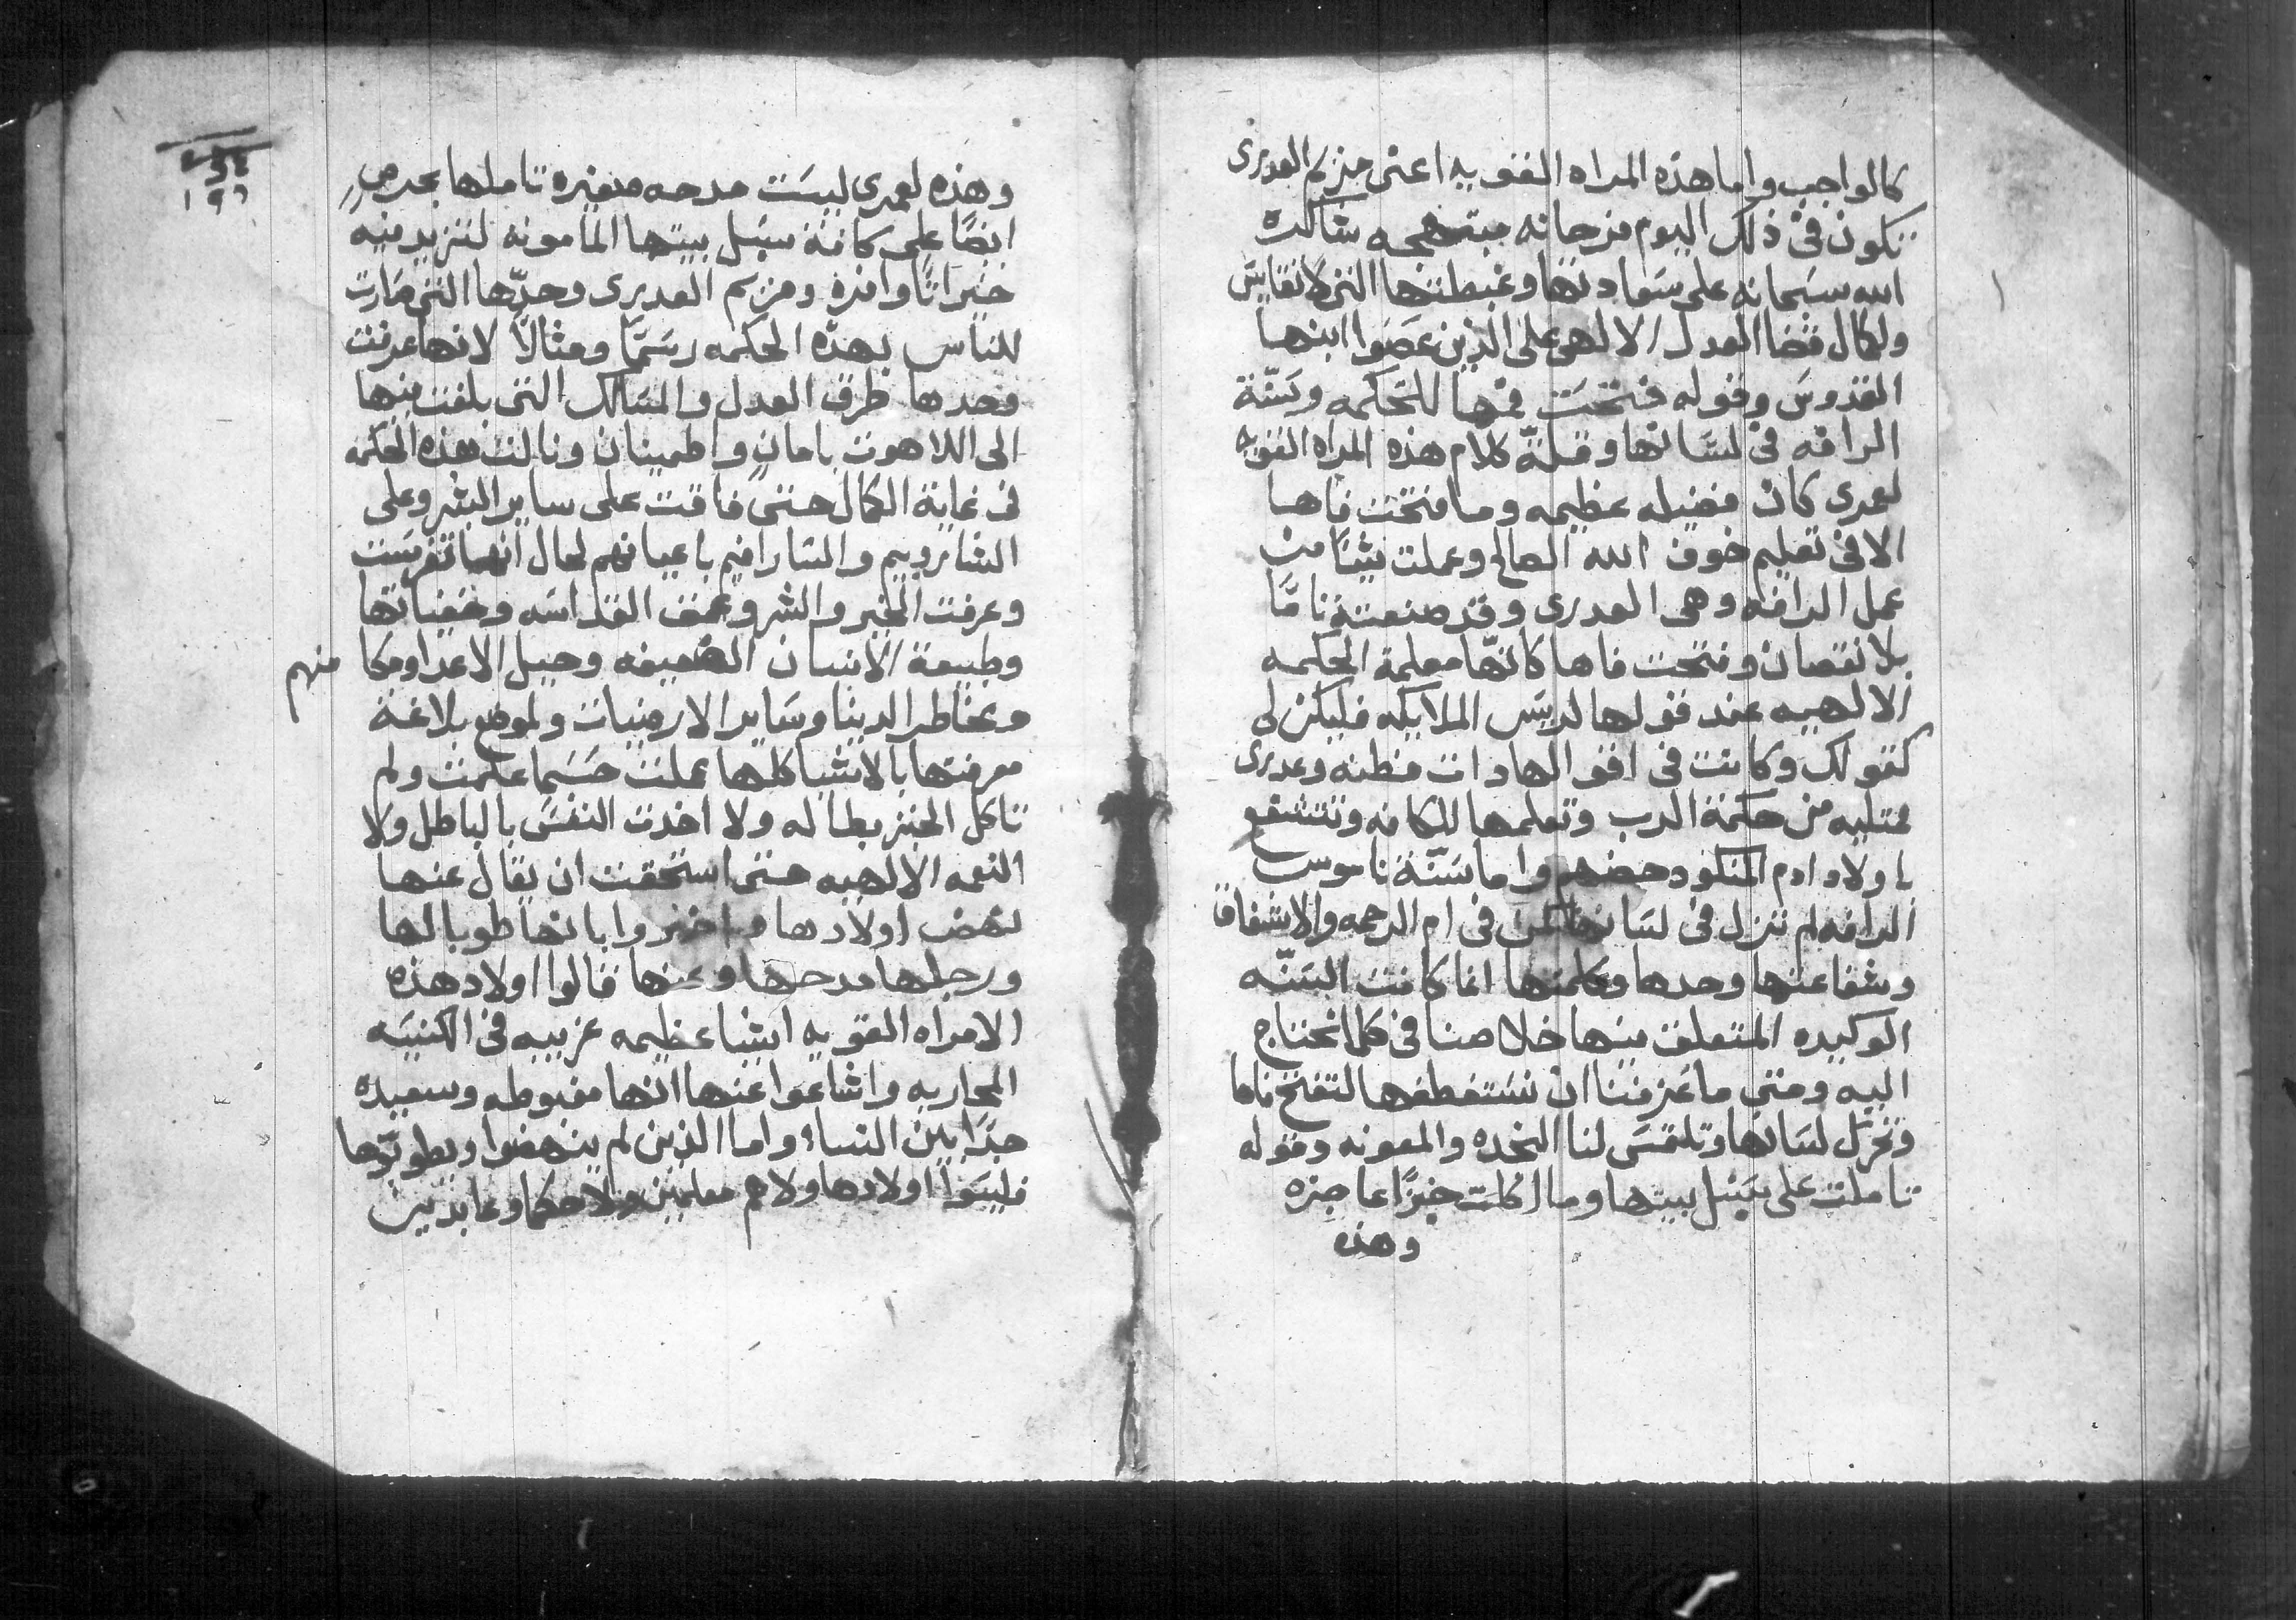 كالواجب واما هذه المراه القويه اعنى مريم العدرى
تكون فى ذلك اليوم فرحانه مبتهجه شاكرة
الله سبحانه على سعادتها وغبطتها التى لا تقايس
ولكمال قضا العدل الالهى على الذين عصوا ابنها
القدوس وقوله فتحت فمها للحكمه وسنّة
الرافه فى لسانها وقلة كلام هذه المراه القويه
لعمرى كان فضيله عظيمه وما فتحت فاها
الا فى تعليم خوف الله الصالح وعملت شيًا من
عمل الرافه وهى العدرى وقد صنعته تامًا
بلا نقصان وفتحت فاها كانها معلمة الحكمه
الالهيه عند قولها لريس الملايكه فليكن لى
كقولك وكانت فى افواهها دات فطنه وعدرى
ممتليه من حكمة الرب وتعلمها للكافه وتتشفع
باولاد ادم المنكود حضهم واما سنّة ناموس
الرافه لم تنزل فى لسانها لكن فى ام الرحمه والاشفاق
وشفاعتها وحدها وكلمتها انما كانت السنّه
الوكيده المتعلق بينها خلاصنا فى كلما نحتاج
اليه ومتى ما عزمنا ان نستعطفها لتفتح فاها
وتحرك لسانها وتلتمس لنا النجده والمعونه وقوله
تاملت على سبيل بيتها وما اكلت خبزًا عاجزه
وهذه
١٩٦
وهذه لعمرى ليست مدحه صغيره تاملها بحرص
ايضًا على كافة سبل بيتها المامونه لتزيد فيه
خيراتًا وافره ومريم العدرى وحدّها التى صارت
للناس بهذه الحكمه رسمًا ومثالًا لانها عرفت
وحدها طرق العدل والمسالك التى بلغت بها
الى اللاهوت بامان واطمينان ونالت هذه الحكمه
فى غاية الكمال حتى فاقت على ساير البشر وعلى
الشاروبيم والسارافيم باعيانهم لحال انها تفرست
وعرفت الخير والشر وعمق القداسه وخفياتها
وطبيعة الانسان الضعيفه وحيل الاعدا ومكا منهم
ومخاطر الدينا وساير الارضيات ولموضع بلاغة
معرفتها بالاشيا كلها عملت حسبما علمت ولم
تاكل الخبز بطاله ولا اخدت النفس بالباطل ولا
النعمه الالهيه حتى استحقت ان يقال عنها
نهض اولادها واخبروا بانها طوبا لها
ورجلها مدحها وعنها قالوا اولاد هذه
الامراه القويه اشيا عظيمه غريبه فى الكنيسه
المحاربه واشاعوا عنها انها مغبوطه وسعيده
جدًا بين النساء واما الذين لم ينهضوا ويطوبّوها
فليسوا اولادها ولا هم معلمين ولا حكما وعابدين